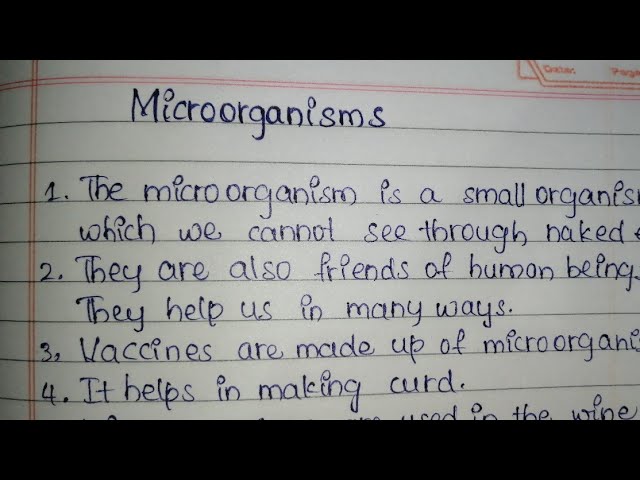 Date: Page
Microorganisms
1. The microorganism is a small organis
which we cannot see through naked
2. They are also friends of human being.
They help us in many ways.
3, Vaccines are made up of microorgani
4. It helps in making curd.
used in the wine